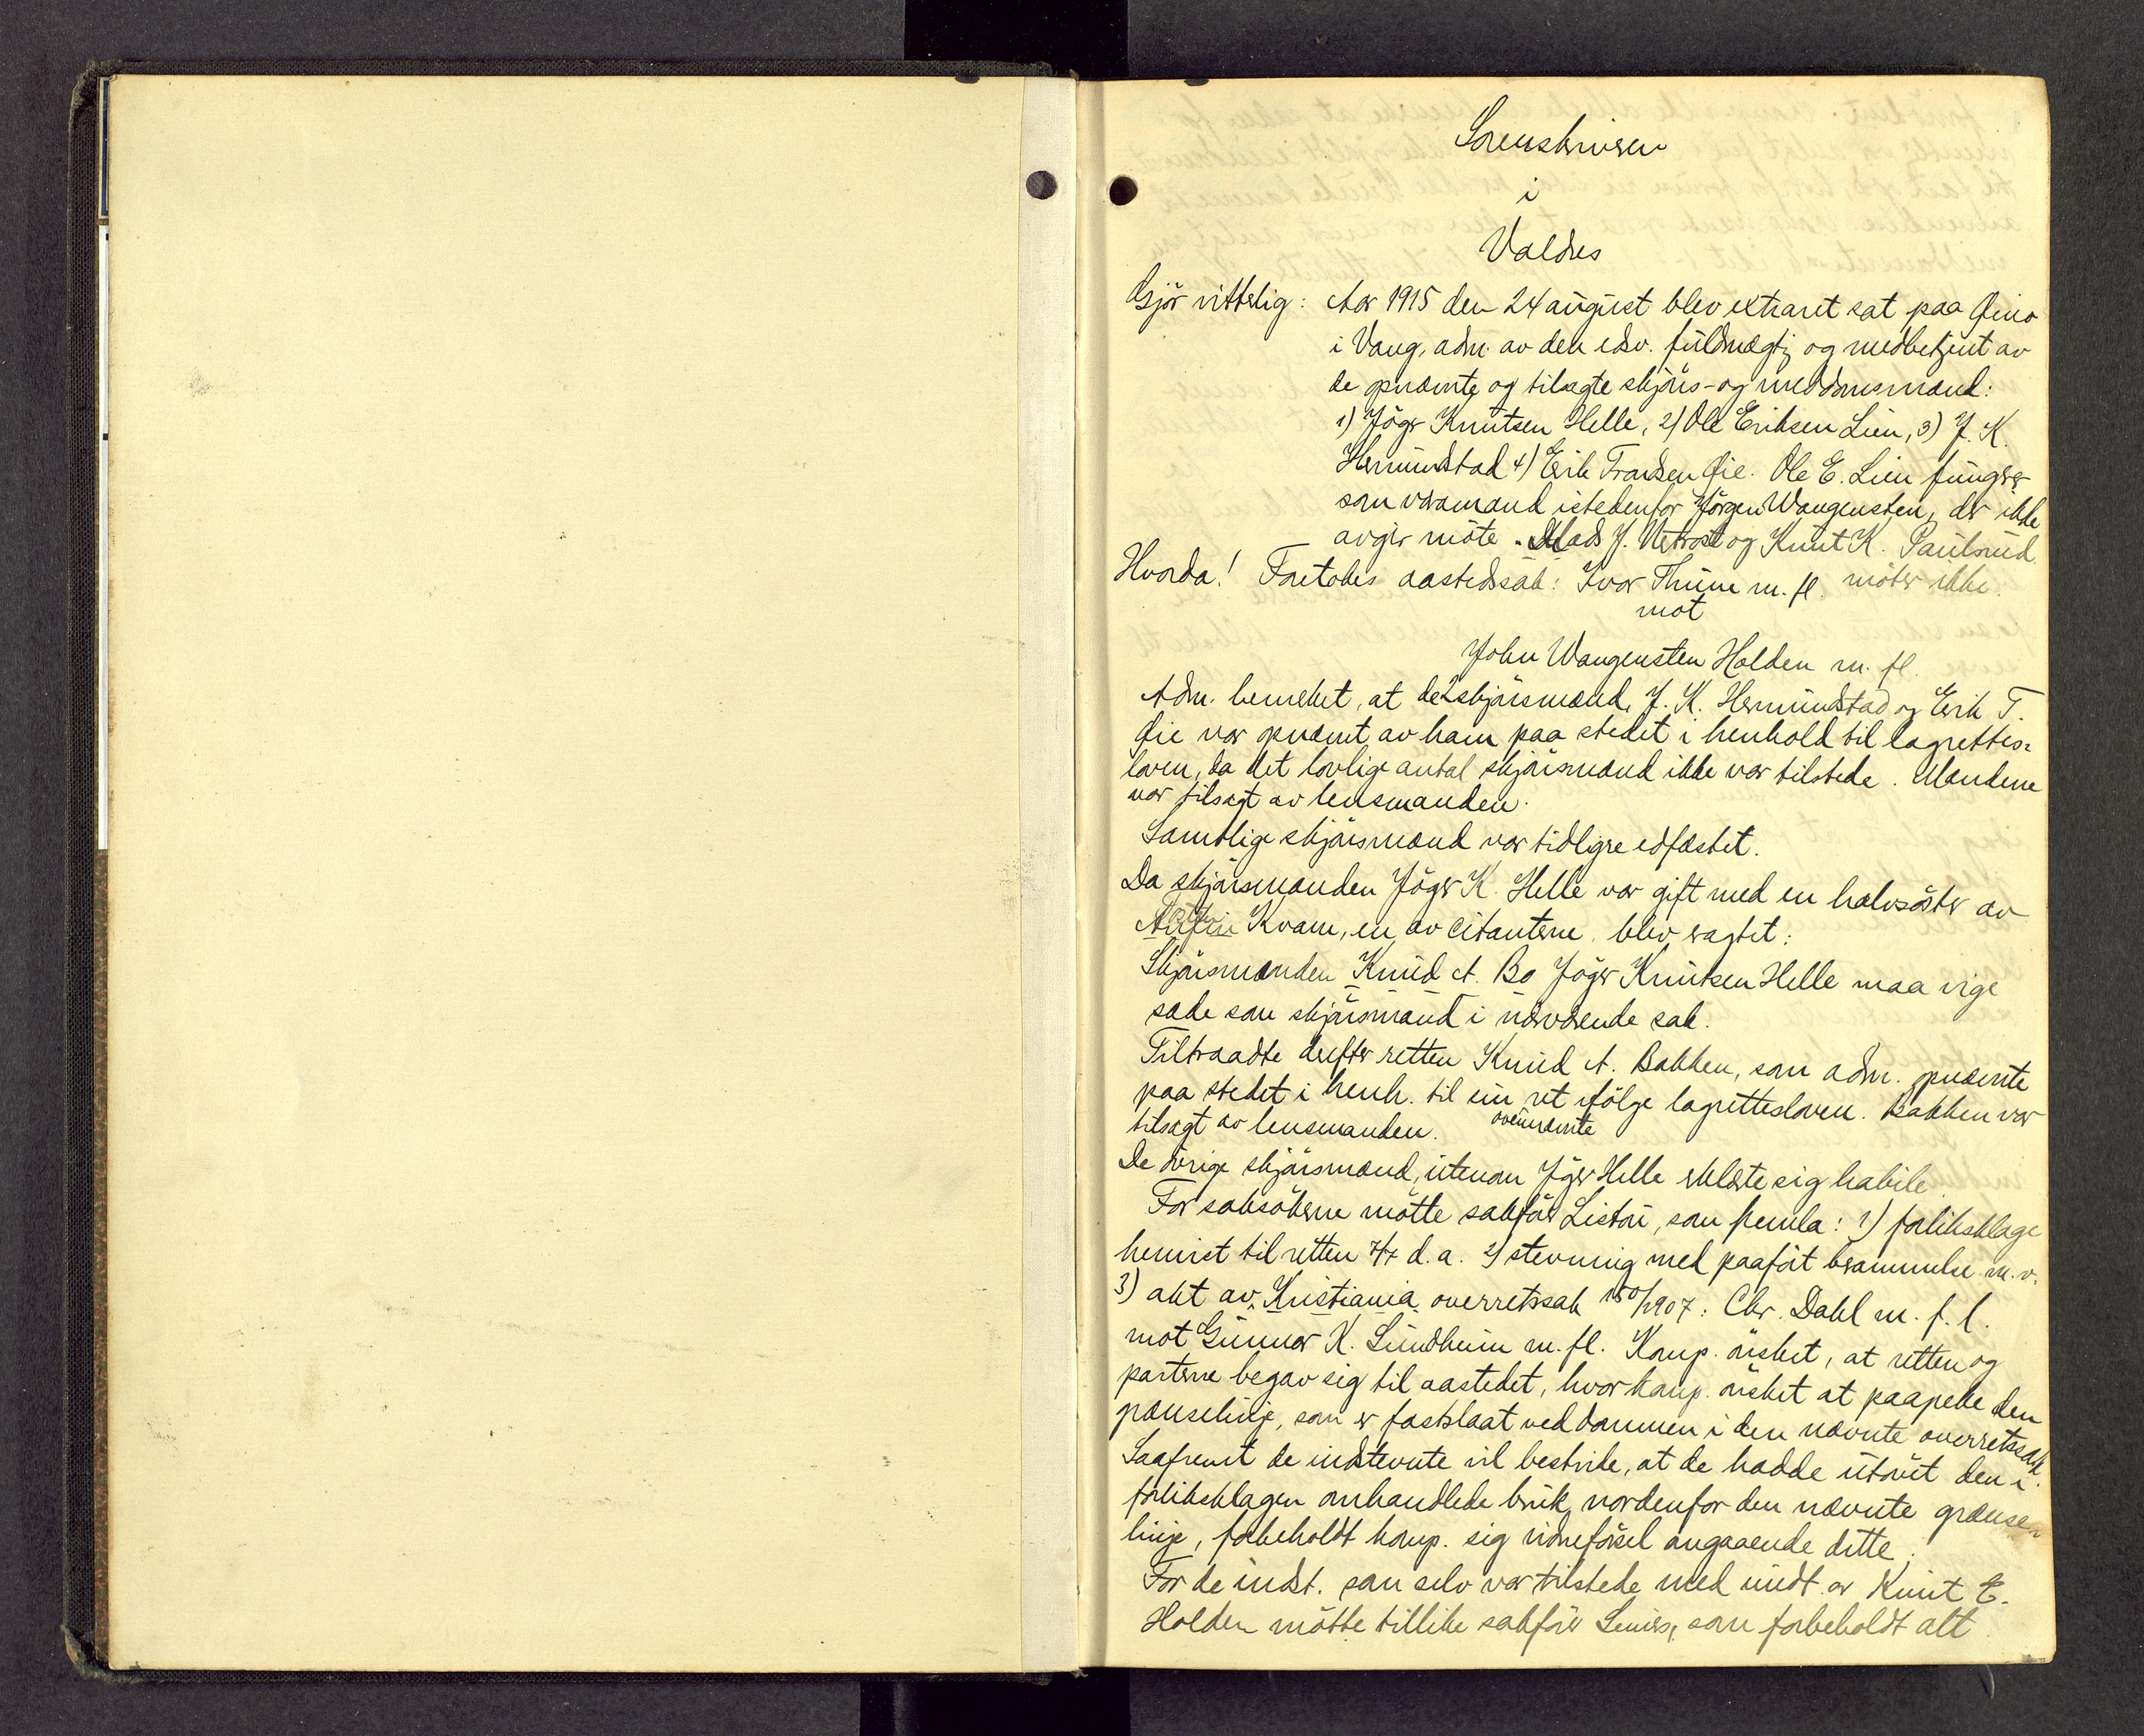 Sorenskriveren
i
Valdres
Gjør vitterlig: Aar 1915 den 24 august blev extraret sat paa Øino
i Vang, adm. av den edsv. fuldmægtig og medbetjent av
de opnævnte og tilsagte skjøns- og meddomsmænd:
1) Jöger Knutsen Helle, 2) Ole Eriksen Lien, 3) J. K.
Hermundstad 4) Erik Trondsen Øie. Ole E. Lien fungerer
som varamand istedenfor Jörgen Wangensten, der ikke
avgir möte. Mads J. og Knut K. Paulsrud
möter ikke.
Hvorda! Foretokes aastedssak: Ivar Thune m. fl.
mot
John Wangensten Holden m. fl.
Adm. bemerket, at de 2 skjönsmænd, J. K. Hermundstad og Erik T.
Øie var opnævnt av ham paa stedet i henhold til lagrettes-
loven, da det lovlige antal skjönsmænd ikke var tilstede. Mændene
var tilsagt av lensmanden.
Samtlige skjönsmænd var tidligere edfæstet.
Da skjönsmanden Jöger K. Helle var gift med en halvsöster av
Kvam, en av citanterne, blev eragtet:
Skjönsmanden Knud A. Bo Jöger Knutsen Helle maa vige
sæde som skjönsmand i nærværende sak.
Tiltraadte derefter retten Knud A. Bakken, som adm. opnævnte
paa stedet i henh. til sin ret ifölge lagrettesloven. Bakken var
tilsagt av lensmanden. ovennævnte
De övrige skjönsmænd, utenom Jöger Helle erklærte sig habile.
For saksökerne mötte sakförer Listou, som freml.: 1) forliksklage
henvist til retten 7/7 d. a. 2) stevning med paafört berammelse m. v.
3) akt av Kristiania overretssak 150/1907: Chr. Dahl m. f. l.
mot Gunnar K. Sundheim m. fl. Komp. önsket, at retten og
parterne begav sig til aastedet, hvor komp. önsket at paapeke den
grænselinje, som er fastslaat ved dommen i den nævnte overretssak
Saafremt de indstevnte vil bestride, at de hadde utövet den i
forliksklagen omhandlede bruk nordenfor den nævnte grænse-
linje, forbeholdt komp. sig vidneförsel angaaende dette.
For de indst. som selv var tilstede med undt. av Knut E.
Holden mötte tillike sakförer som forbeholdt alt